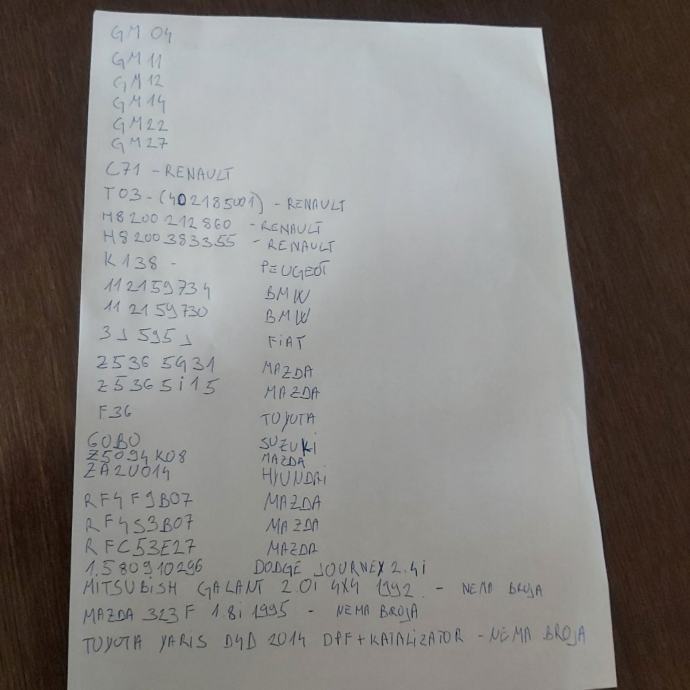 GM 04
GM 11
GM 12
GM 14
GM 22
GM 27
C71 - RENAULT
T03 - (402185001) - RENAULT
H8200212860 - RENAULT
H8200383355 - RENAULT
K138 - PEUGEOT
112159734 BMW
112159730 BMW
FIAT
Z5365G31 MAZDA
Z5365i15 MAZDA
F36 TOYOTA
GOBO SUZUKi
Z5094K08 MAZDA
ZA2U014 HYUNDAi
RF4F9B07 MAZDA
RF4S3B07 MAZDA
RFC53E27 MAZDA
1,580910296 DODGE JOURNEY 2.4i
MITSUBiSH GALANT 2.0i 4X4 1992. - NEMA BROJA
MAZDA 323 F 1.8i 1995 - NEMA BROJA
TOYOTA YARIS D4D 2014 DPF + KATALiZATOR - NEMA BROJA